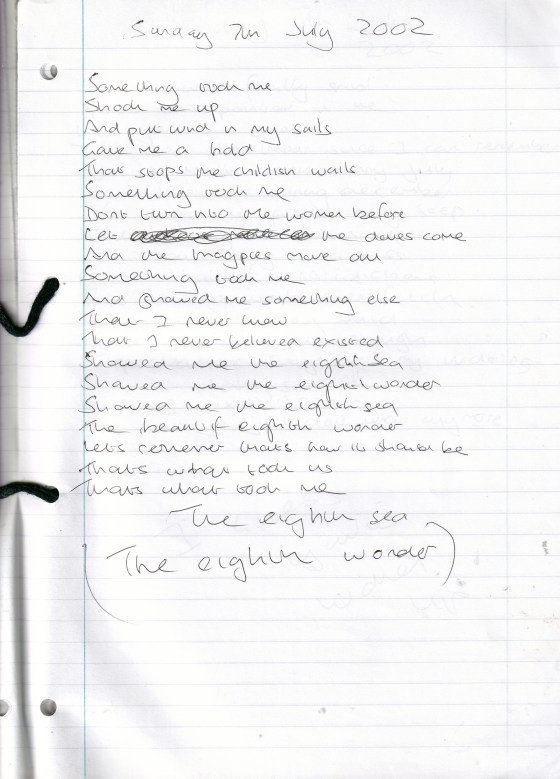 Sunday 7th July 2002
Something took me
Shook me up
And put wind in my sails
Gave me a hold
That stops me childish wails
Something took me
Dont turn into the women before
Let the doves come
And the magpies move out
Something took me
And showed me something else
That I never knew
That I never believed existed
Showed me the eighth sea
Showed me the eighth wonder
Showed me the eighth sea
The beautif eighth wonder
Lets remember thats how it should be
Thats what took us
Thats what took me
The eighth sea
(The eighth wonder)